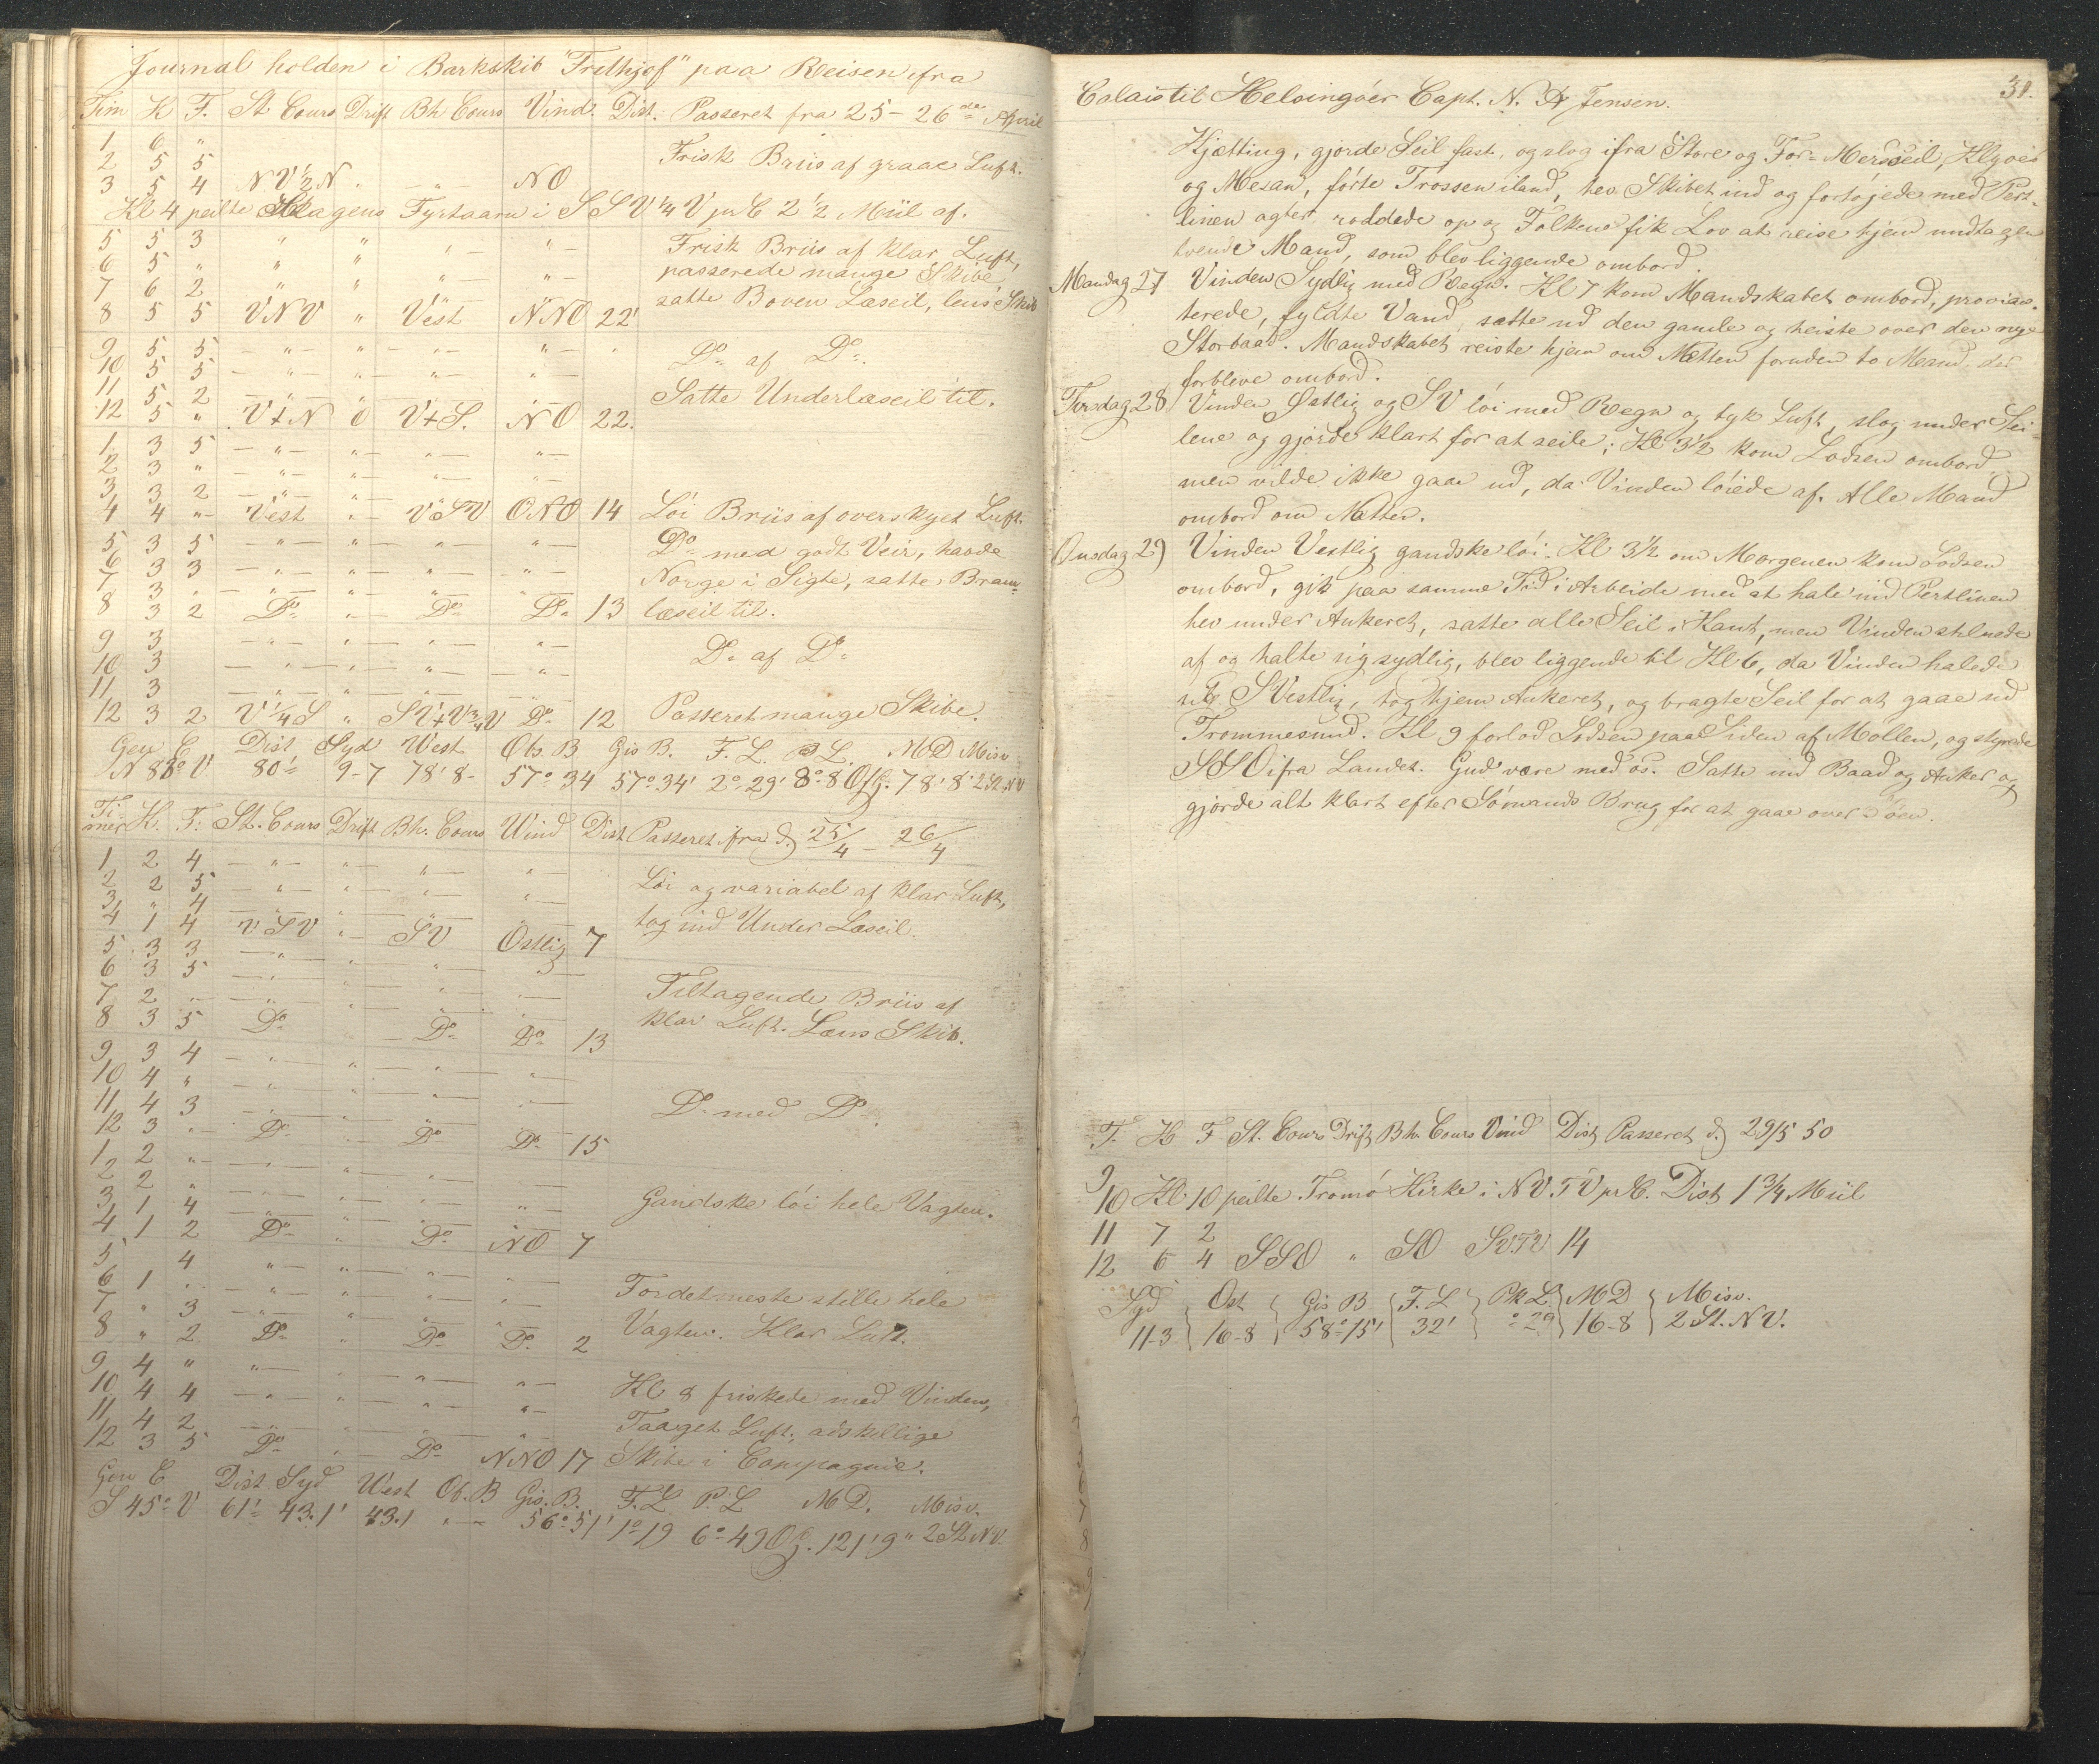 Journal holden i Barkskib "Frithjof" paa Reisen ifra
Tim K F. St Cours Drift Bh Cours Vind. Dist. Passeret fra 25 - 26de April
1 6 "
2 5 5 Frisk Briis af graae Luft.
3 5 4 NV½N " — " — NO
Kl 4 peilte Skagens Fyrtaarn i SSV ¼ V pr C 2½ Miil af.
5 5 3 " " " — " — Frisk Briis af klar Luft,
6 5 " " " " — " — passerede mange Skibe,
7 6 2 " " " — " — satte Boven Læseil, lens Skib
8 5 5 VNV " Vest NNO 22'
9 5 5 — " — " — " — " — "
10 5 5 — " — " — " — " — Do af Do
11 5 2 — " — " — " — " —
12 5 " V+N 0 V+S. NO 22. Satte Underlæseil til.
1 3 5 — " — " — " — " —
2 3 " — " — " — " — " —
3 3 2 — " — " —
4 4 " Vest " — VSV ONO 14 Löi Briis af overskyet Luft.
5 3 5 — " — " — " — " — Do med godt Veir, havde
6 3 3 — " — " — " — " — Norge i Sigte, satte Bram-
7 3 " — " — " — " — " —
8 3 2 Do " — Do Do 13 læseil til.
9 3 — " — " — " — " —
10 3 — " — " — " — " — Do af Do
11 3 — " — " — " — " —
12 3 2 V¼S " SV+V¾V Do 12 Passeret mange Skibe.
Gen C Dist Syd West Obs. B Gis B. F. L. P L. MD Misv
N 83o V 80' 9-7 78'8- 57o 34 57o 34' 2o 29' 8o 8 Ofg. 78'8" 2 St NV
Ti-
mer K. F. St. Cours Drift Bh. Cours Wind Dist Passeret ifra d. 25/4 - 26/4
1 2 4 — " — " — " — " —
2 2 5 — " — " — " — " — Löi og variabel af klar Luft,
3 " 4 — " — " — " — " —
4 1 4 VSV " — SV Ostlig 7 tog ind Under Læseil.
5 3 3 — " — " — " — " —
6 3 5 — " — " — " — " — Tiltagende Briis af
7 2 " — " — " — " — " —
8 3 5 Do Do Do 13 klar Luft. Læns Skib.
9 3 4 — " — " — " — " —
10 4 " — " — " — " — " —
11 4 3 — " — " — " — " — Do med Do
12 3 " Do Do Do 15
1 2 " — " — " — " — " —
2 2 " — " — " — " — " —
3 1 4 — " — " — " — " — Gandske löi hele Vagten.
4 1 2 Do " Do NO 7
5 4 " — " — " — " —
6 1 " — " — " — " — " — Fordetmeste stille hele
7 " 3 — " — " — " — " —
8 " 2 Do " Do Do 2 Vagten. Klar Luft.
9 4 " " — " — " — " —
10 4 4 — " — " — " — " — Kl 8 friskede med Vinden,
11 4 2 — " — " — " — " — Taaget Luft, adskellige
12 3 5 Do " Do NNO 17 Skibe i Compagnie.
Gen C Dist Syd West Ob. B Gis. B. F. L P. L MD. Misv.
S 45o V 61' 43.1' 43.1 " — 56o 51' 1o 19 6o 49 Ofg. 121'9" 2 St NV.
31.
Calais til Helsingöer Capt. N. A Jensen.
Kjætting, gjorde Seil fast, og slog ifra Store og For-Mersseil, Klyver
og Mesan, førte Trossen iland, hev Skibet ind og fortøjede med Pert-
linen agter, røddede op og Folkene fik Lov at reise hjem undtagen
tvende Mand, som blev liggende ombord.
Mandag 27 Vinden Sydlig med Regn. Kl 7 kom Mandskabet ombord, provian-
terede, fyldte Vand, satte ud den gamle og heiste over den nye
Storbaad. Mandskabet reiste hjem om Natten foruden to Mand, der
forbleve ombord.
Tirsdag 28 Vinden Østlig og SV löi med Regn og tyk Luft, slog under Sei-
lene og gjorde klart for at seile; Kl 3½ kom Lodsen ombord
men vilde ikke gaae ud, da Vinden löiede af. Alle Mand
ombord om Natten.
Onsdag 29 Vinden Vestlig gandske löi. Kl 3½ om Morgenen kom Lodsen
ombord, gik paa samme Tid i Arbeide med at hale ind Pertlinen
hev under Ankeret, satte alle Seil i Kant, men Vinden stilnede
af og halte sig sydlig, blev liggende til Kl 6, da Vinden halede
sig SVestlig, tog hjem Ankeret, og bragte Seil for at gaae ud
Trommesund. Kl 9 forlod Lodsen paa Siden af Mollen, og styrede
SSO ifra Landet. Gud være med os. Satte ind Baad og Anker og
gjorde alt klart efter Sömands Brug for at gaae over Söen.
T. K F St. Cours Drift Bh. Cours Vind Dist Passeret d. 29/5 50
9
10 Kl 10 peilte Tromö Kirke i NV.TV pr C. Dist 1¾ Miil
11 7 2
12 6 4 SSO " SO SV.TV 14
Syd Ost Gis B F. L PkL MD Misv.
11-3 16-8 58o 15' 32' o 29 16-8 2 St. NV.